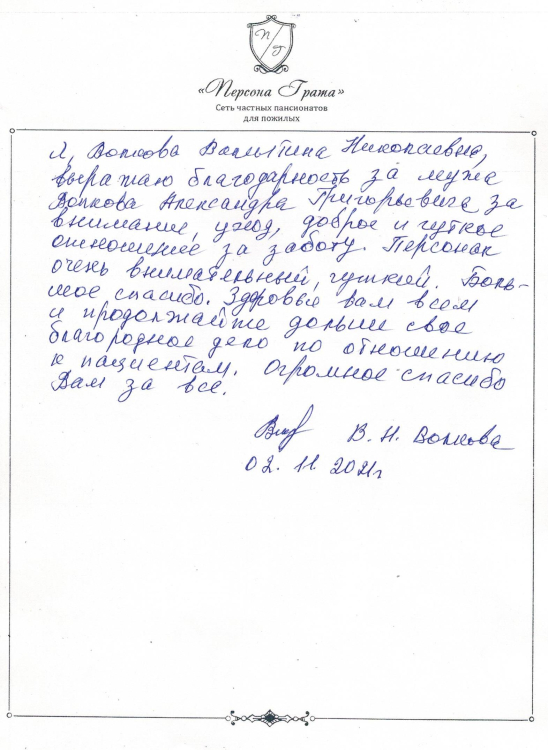 П Г
«Персона Грата»
Сеть частных пансионатов
для пожилых
Я, Волкова Валентина Николаевна,
выражаю благодарность за мужа
Волкова Александра Григорьевича за
внимание, уход, доброе и чуткое
отношение за заботу. Персонал
очень внимательный, чуткий. Боль-
шое спасибо. Здоровья вам всем
и продолжайте дальше свое
благородное дело по отношению
к пациентам. Огромное спасибо
Вам за все.
В. Н. Волкова
02. 11. 2021г